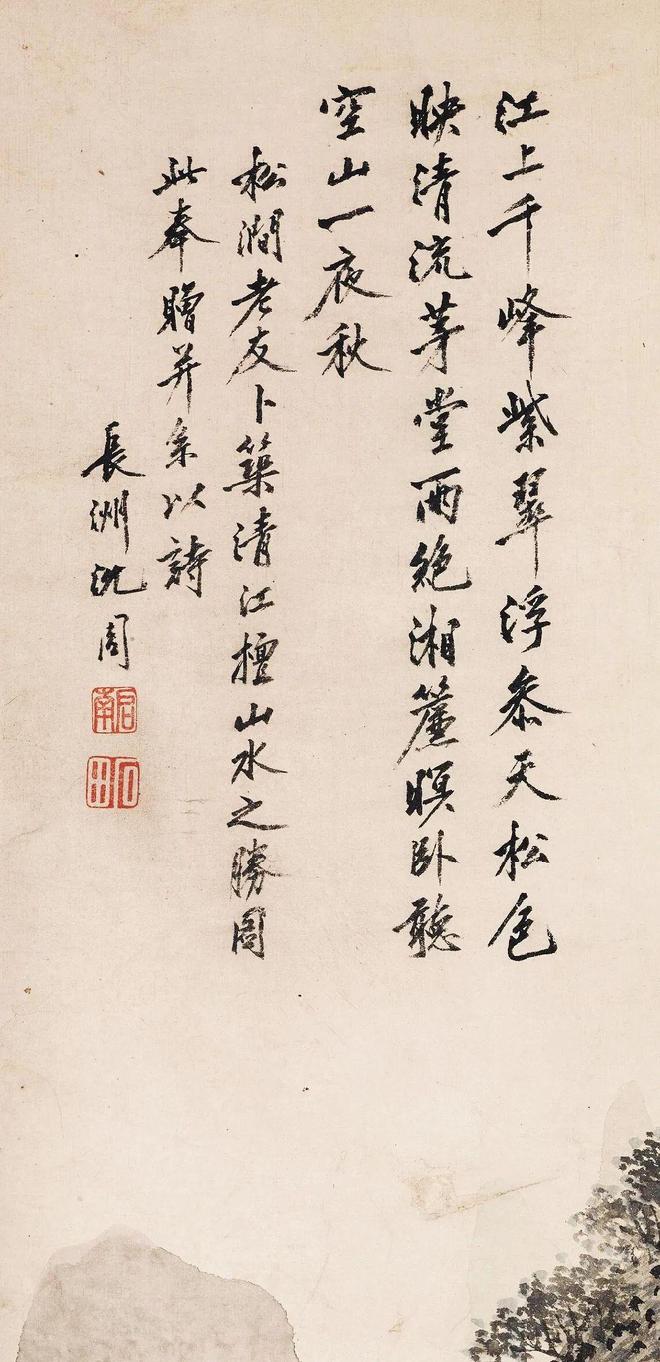 江上千峰紫翠浮参天松色
映清流茅堂雨绝湘簾暝卧聽
空山一夜秋
松澗老友卜築清江擅山水之勝圖
此奉贈并系以詩
長洲沈周
啓南
石田